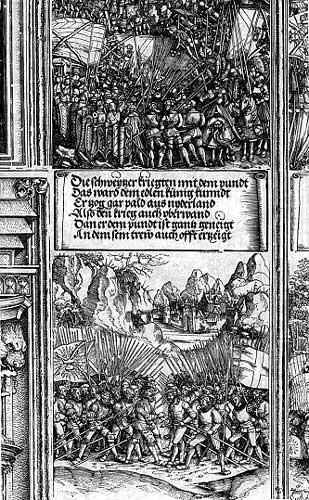 Die schweytzer kriegten mit dem pundt
Das ward dem edlen künig kundt
Er zog gar pald aus nyderland
Also den krieg auch yberwand
Dan er dem pundt ist gantz geneigt
An dem sein trew auch offt erzeigt